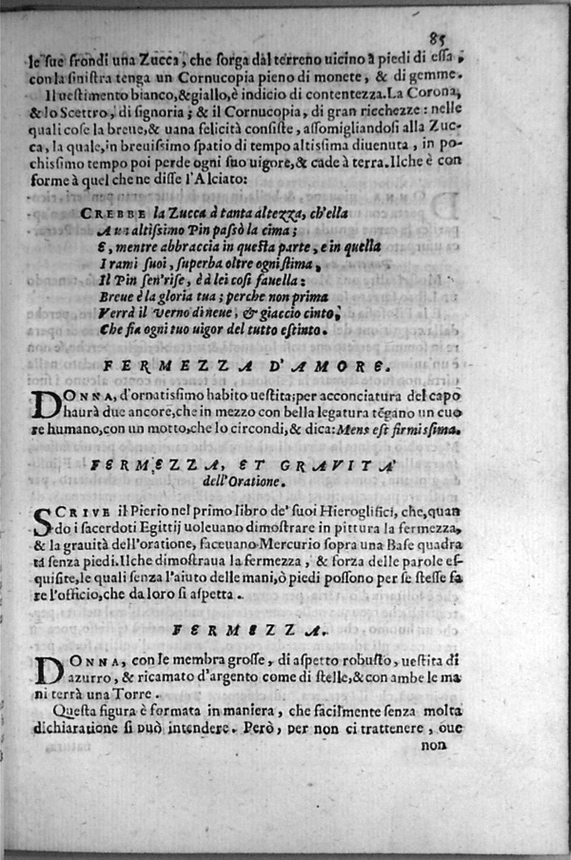 85
le sue frondi una Zucca, che sorga dal terreno uicino à piedi di essa,
con la sinistra tenga un Cornucopia pieno di monete, & di gemme.
Il uestimento bianco, & giallo, è indicio di contentezza. La Corona,
& lo Scettro, di signoria; & il Cornucopia, di gran ricchezze: nelle
quali cose la breue, & uana felicità consiste, assomigliandosi alla Zuc-
ca, la quale, in breuissimo spatio di tempo altissima diuenuta, in po-
chissimo tempo poi perde ogni suo uigore, & cade à terra. Ilche è con
forme à quel che ne disse l'Alciato:
CREBBE la Zucca à tanta altezza, ch'ella
A un altissimo Pin passò la cima;
E, mentre abbraccia in questa parte, e in quella
I rami suoi, superba oltre ogni stima,
Il Pin sen'rise, è à lei cosi fauella:
Breue è la gloria tua; perche non prima
Verrà il verno di neue, & giaccio cinto,
Che fia ogni tuo uigor del tutto estinto.
FERMEZZA D'AMORE.
DONNA, d'ornatissimo habito uestita; per acconciatura del capo
haurà due ancore, che in mezzo con bella legatura tēgano un cuo
re humano, con un motto, che lo circondi, & dica: Mens est firmissima.
FERMEZZA, ET GRAVITA'
dell'Oratione.
SCRIVE il Pierio nel primo libro de' suoi Hieroglifici, che, quan
do i sacerdoti Egittij uoleuano dimostrare in pittura la fermezza,
& la grauità dell'oratione, faceuano Mercurio sopra una Base quadra
ta senza piedi. Ilche dimostraua la fermezza, & forza delle parole es-
quisite, le quali senza l'aiuto delle mani, ò piedi possono per se stesse fa
re l'officio, che da loro si aspetta.
FERMEZZA.
DONNA, con le membra grosse, di aspetto robusto, uestita di
azurro, & ricamato d'argento come di stelle, & con ambe le ma
ni terrà una Torre.
Questa figura è formata in maniera, che facilmente senza molta
dichiaratione si può intendere. Però, per non ci trattenere, oue
non